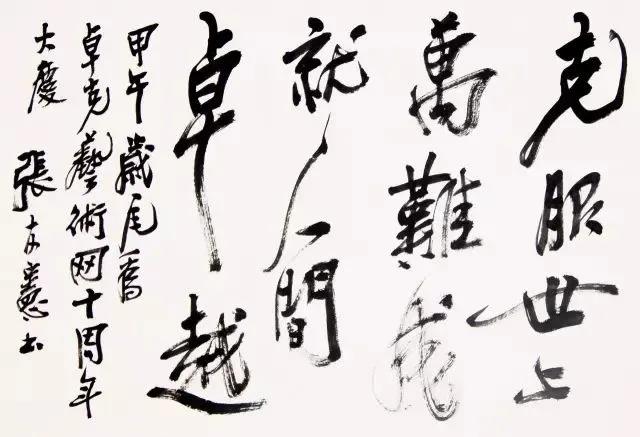 克服世上
萬難成
就人間
卓越
甲午歲尾
卓克藝術网十周年
大慶
張憲书